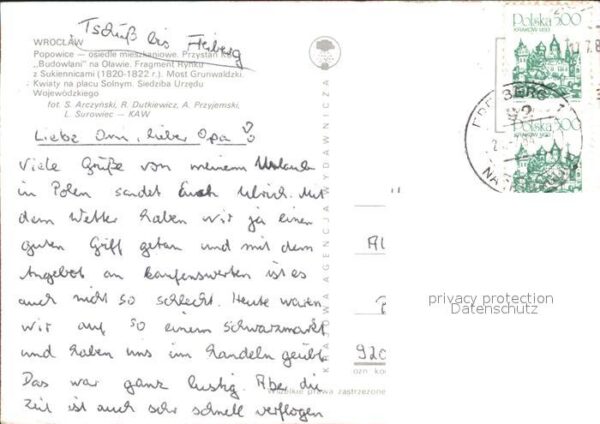 Tschüß bis Freiberg
WROCŁAW
Popowice — osiedle mieszkaniowe. Przystań
„Budowlani” na Oławie. Fragment Rynku
z Sukiennicami (1820-1822 r.). Most Grunwaldzki.
Kwiaty na placu Solnym. Siedziba Urzędu
Wojewódzkiego
fot. S. Arczyński, R. Dutkiewicz, A. Przyjemski,
L. Surowiec — KAW
Liebe Omi, lieber Opa
Viele Grüße von meinem Urlaub
in Polen sendet Euch Ulrich. Mit
dem Wetter haben wir ja einen
guten Griff getan und mit dem
Angebot an kaufenswerten ist es
auch nicht so schlecht. Heute waren
wir auf so einem Schwarzmarkt
und haben uns im handeln geübt
Das war ganz lustig. Aber die
Zeit ist auch sehr schnell verflogen
KRAJOWA AGENCJA WYDAWNICZA
Polska 500
KRAKÓW 1493
Polska 500
KRAKÓW 1493
92
920
ozn ko
Wszelkie prawa zastrzeżone
privacy protection
Datenschutz